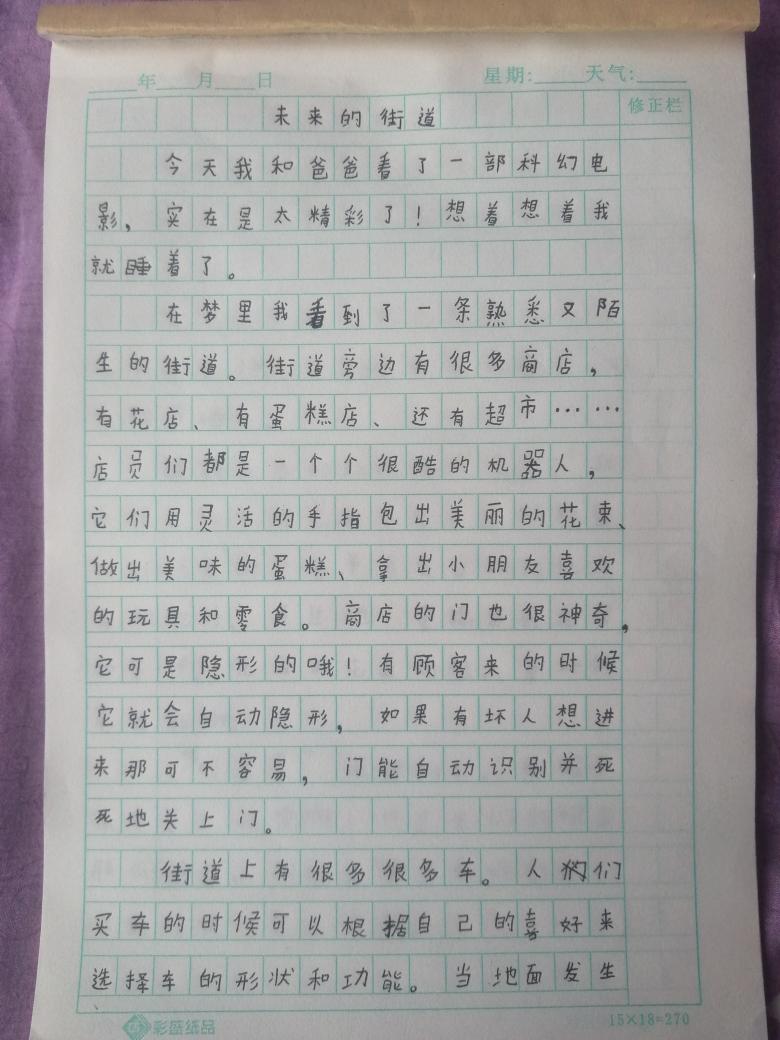 年 月 日 星期: 天气:
修正栏
未来的街道
今天我和爸爸看了一部科幻电
影，实在是太精彩了！想着想着我
就睡着了。
在梦里我看到了一条熟悉又陌
生的街道。街道旁边有很多商店，
有花店、有蛋糕店、还有超市……
店员们都是一个个很酷的机器人，
它们用灵活的手指包出美丽的花束、
做出美味的蛋糕、拿出小朋友喜欢
的玩具和零食。商店的门也很神奇，
它可是隐形的哦！有顾客来的时候
它就会自动隐形，如果有坏人想进
来那可不容易，门能自动识别并死
死地关上门。
街道上有很多很多车。人们
买车的时候可以根据自己的喜好来
选择车的形状和功能。当地面发生
彩盛纸品 15×18=270